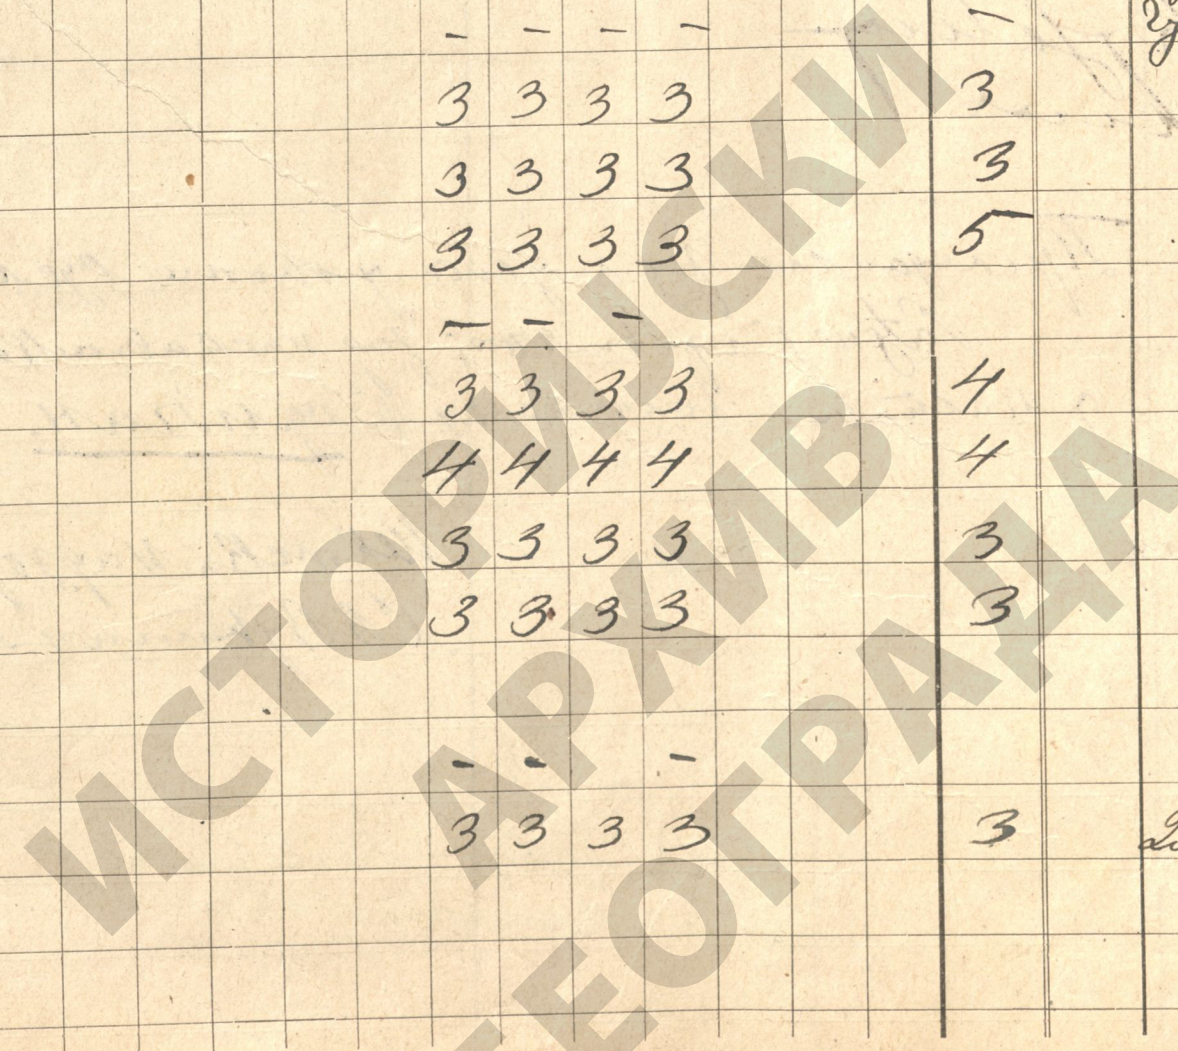 - - - - -
3 3 3 3 3
3 3 3 3 3
3 3 3 3 5
- - -
3 3 3 3 4
4 4 4 4 4
3 3 3 3 3
3 3 3 3 3
- - -
3 3 3 3 3
ИСТОРИЈСКИ
АРХИВ
БЕОГРАДА